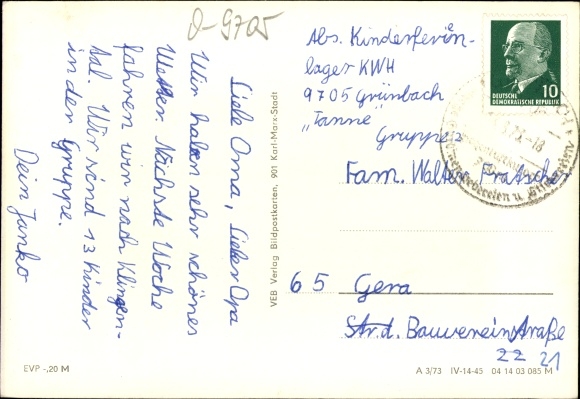 D-9705
Liebe Oma, Lieber Opa
Wir haben sehr schönes
Wetter. Nächste Woche
fahren wir nach Klingen-
tal. Wir sind 13 Kinder
in der Gruppe.
Dein Janko
VEB Verlag Bildpostkarten, 901 Karl-Marx-Stadt
Abs. Kinderferien-
lager KWH
9705 Grünbach
"Tanne"
Gruppe 2
Fam. Walter Fratscher
65 Gera
Str.d. Bauvereinstraße
22 21
10
DEUTSCHE
DEMOKRATISCHE REPUBLIK
-18
EVP -,20 M
A 3/73 IV-14-45 04 14 03 085 M